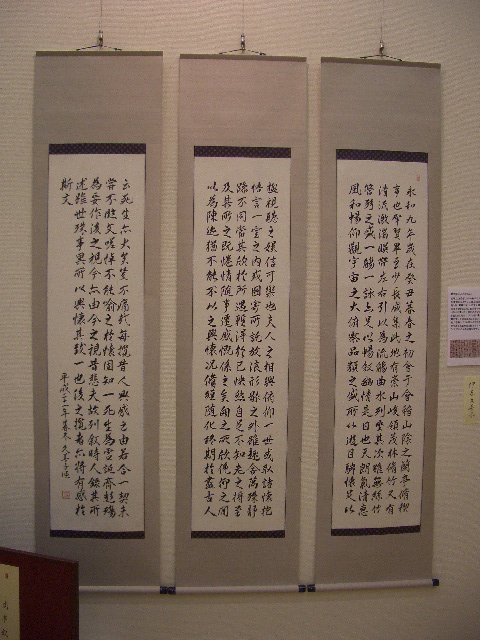 永和九年歲在癸丑暮春之初會于會稽山陰之蘭亭脩禊
事也羣賢畢至少長咸集此地有崇山峻領茂林脩竹又有
清流激湍暎帶左右引以為流觴曲水列坐其次雖無絲竹
管弦之盛一觴一詠亦足以暢敘幽情是日也天朗氣清惠
風和暢仰觀宇宙之大俯察品類之盛所以遊目騁懷足以
極視聽之娛信可樂也夫人之相與俯仰一世或取諸懷抱
悟言一室之內或因寄所託放浪形骸之外雖趣舍萬殊靜
躁不同當其欣於所遇暫得於己快然自足不知老之將至
及其所之既惓情隨事遷感慨係之矣向之所欣俛仰之間
以為陳迹猶不能不以之興懷況脩短隨化終期於盡古人
云死生亦大矣豈不痛哉每攬昔人興感之由若合一契未
嘗不臨文嗟悼不能喻之於懷固知一死生為虛誕齊彭殤
為妄作後之視今亦由今之視昔悲夫故列敘時人錄其所
述雖世殊事異所以興懷其致一也後之攬者亦將有感於
斯文